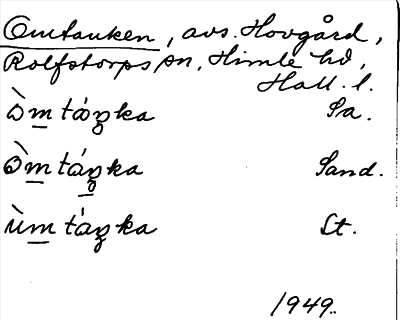 Omtanken, avs. Hovgård,
Rolfstorps sn, Himle hd,
Hall. l.
òm táŋka Sa.
òm táŋka Sand.
ùm táŋka Lt.
1949.